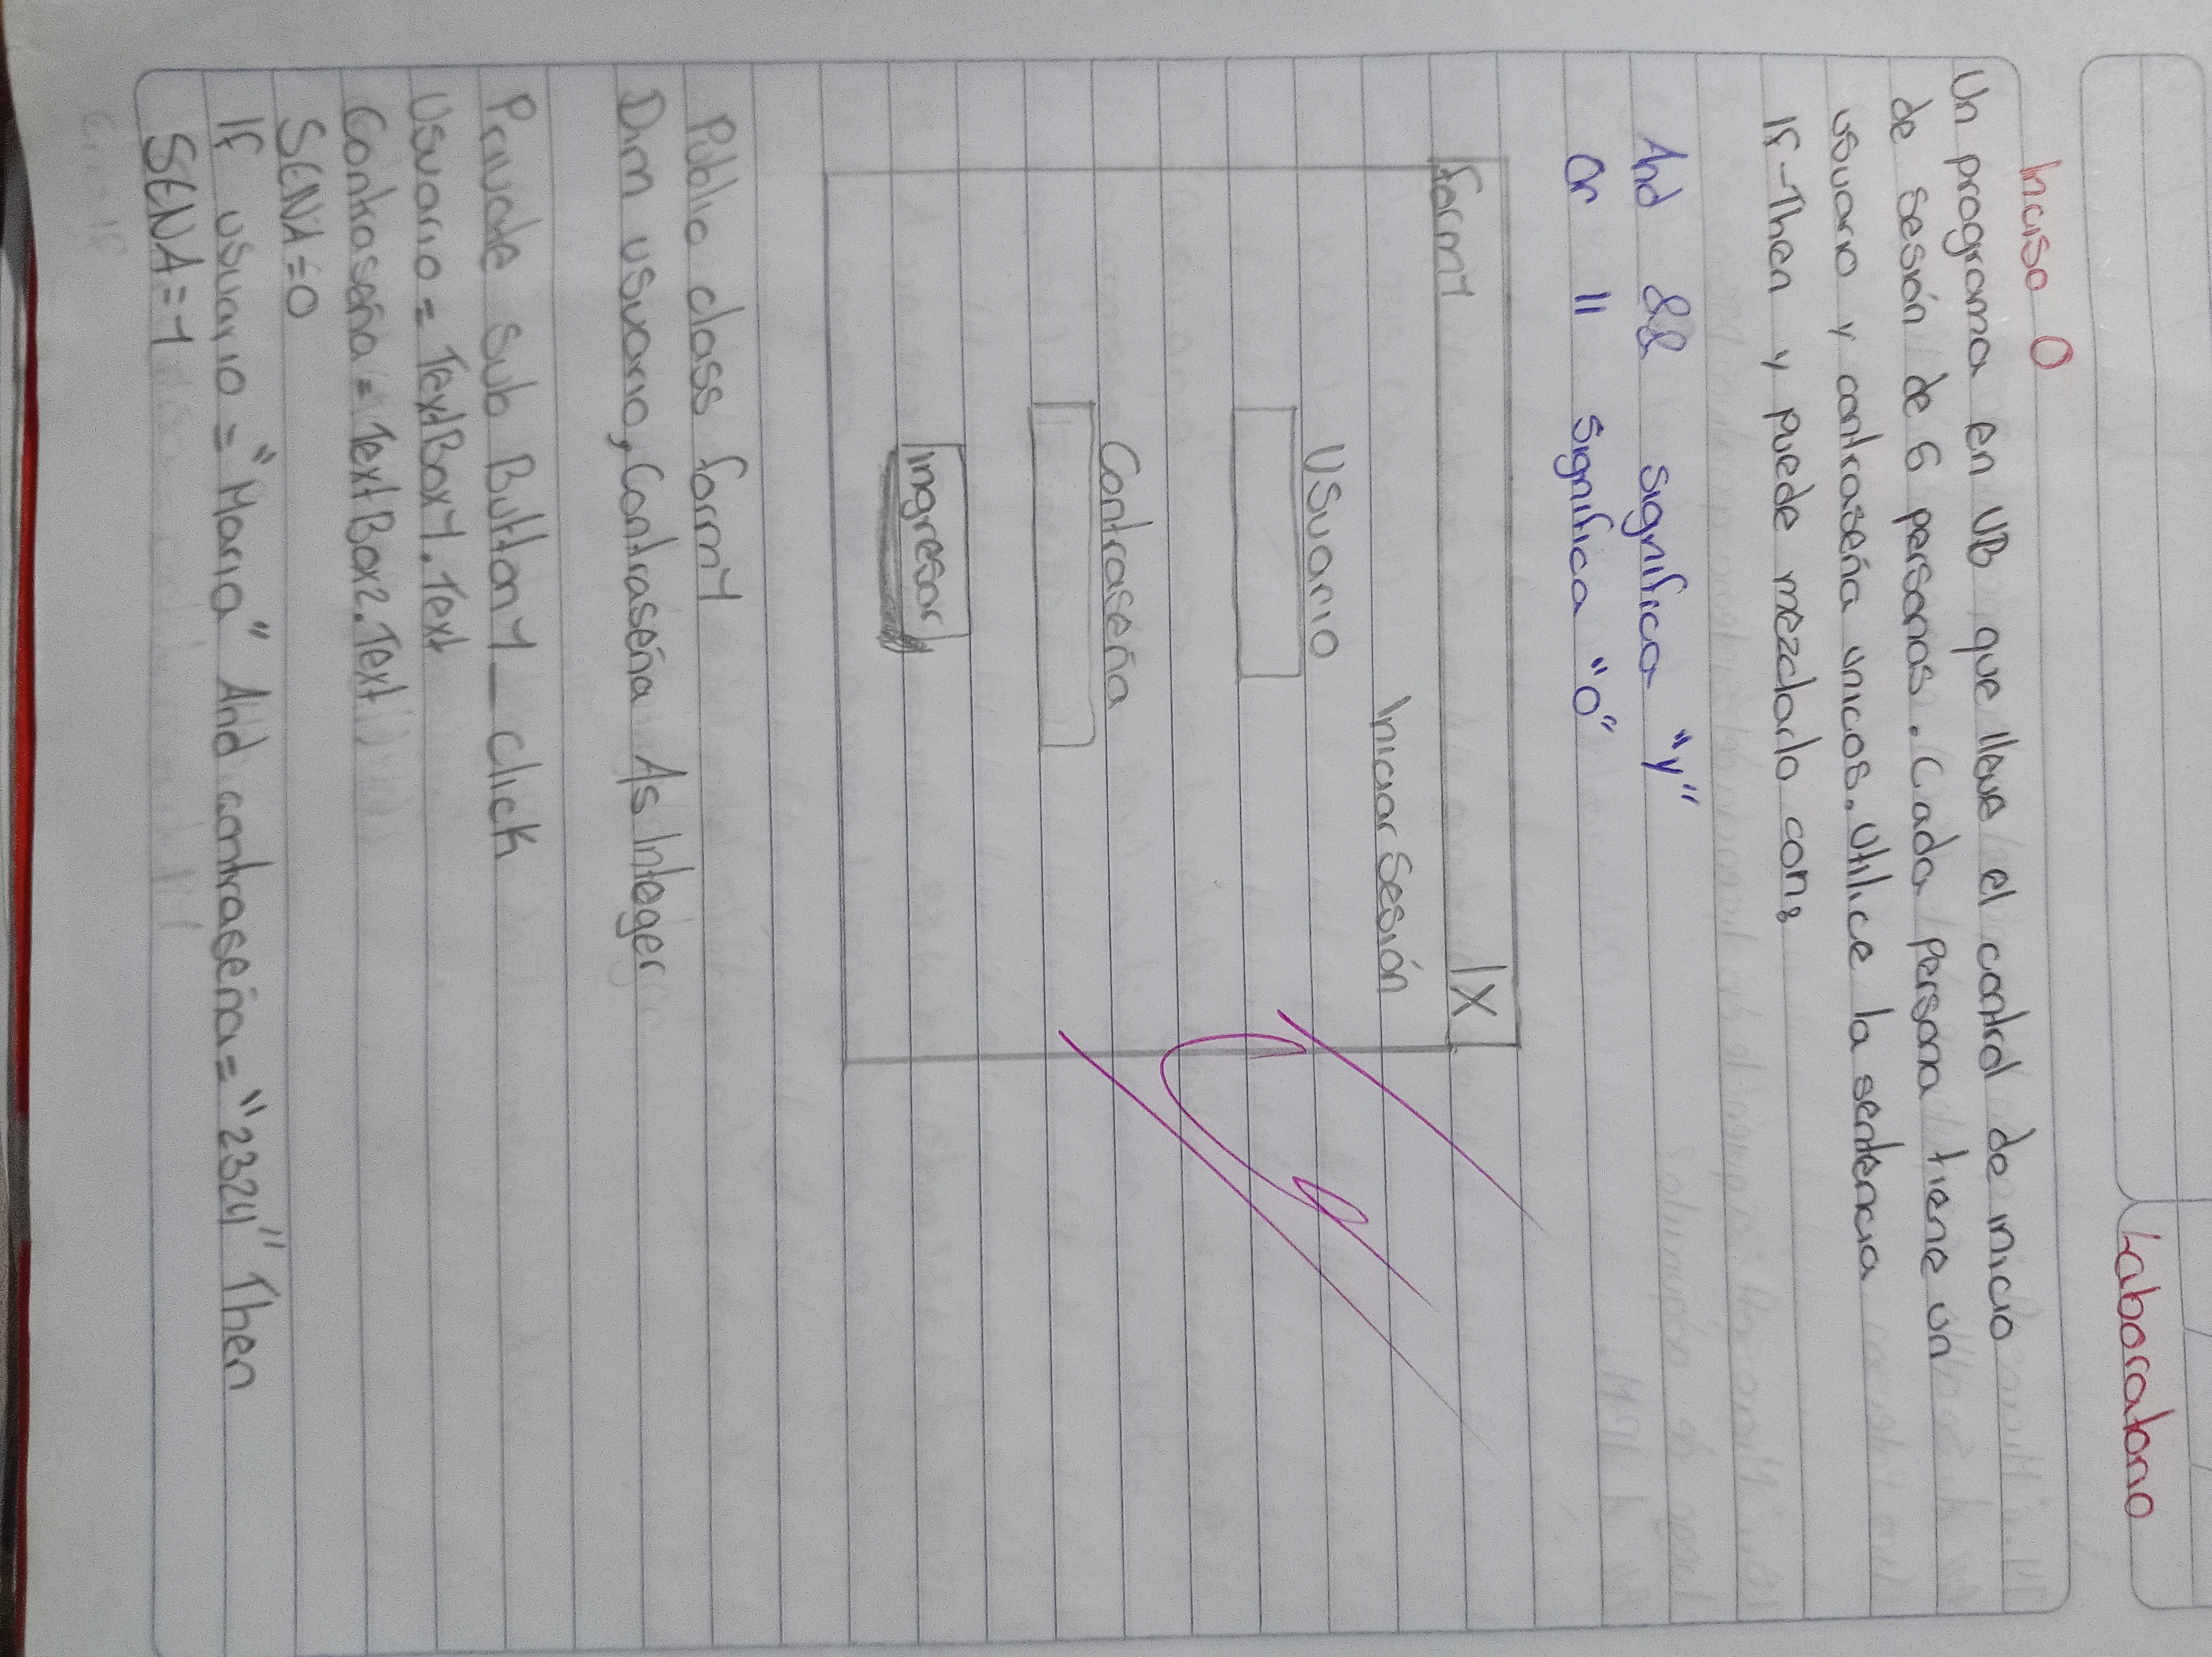 Laboratorio
Inciso O
Un programa en VB que lleve el control de inicio
de sesión de 6 personas. Cada persona tiene un
usuario y contraseña unicos. Utilice la sentencia
If-Then y puede mezclarlo con:
And && significa "y"
Or || significa "O"
form1 X
Iniciar Sesión
Usuario
Contraseña
Ingresar
Public class form1
Dim usuario, Contraseña As Integer
Private Sub Button1_click
Usuario = TextBox1.Text
Contraseña = TextBox2.Text
SENA=0
If usuario = "Mario" And contraseña = "2324" Then
SENA=1